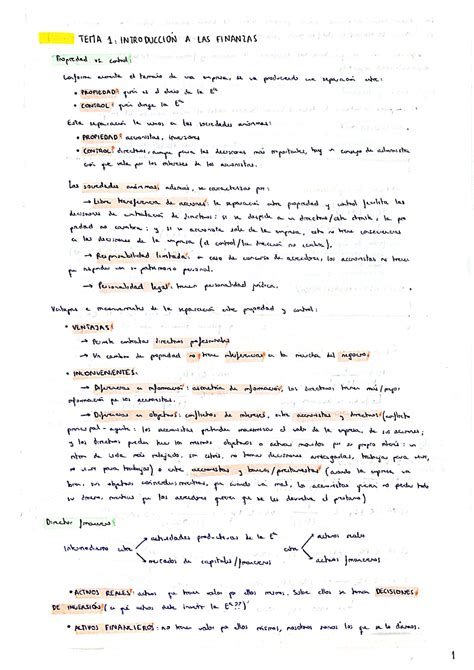 TEMA 1: INTRODUCCIÓN A LAS FINANZAS
Propiedad vs. control:
Conforme aumenta el tamaño de una empresa, se va produciendo una separación entre:
• PROPIEDAD: quién es el dueño de la Eª
• CONTROL: quién dirige la Eª
Esta separación la vemos en las sociedades anónimas:
• PROPIEDAD: accionistas, inversores
• CONTROL: directivos, aunque para las decisiones más importantes, hay un consejo de administra
ción que vela por los intereses de los accionistas.
Las sociedades anónimas, además, se caracterizan por:
→ Libre transferencia de acciones: la separación entre propiedad y control facilita las
decisiones de contratación de directivos: si se despide a un directivo/éste dimite, la pro
piedad no cambia; y si un accionista sale de la empresa, esto no tiene consecuencias
en las decisiones de la empresa (el control/la dirección no cambia).
→ Responsabilidad limitada: en caso de concurso de acreedores, los accionistas no tienen
que responder con su patrimonio personal.
→ Personalidad legal: tienen personalidad jurídica.
Ventajas e inconvenientes de la separación entre propiedad y control:
• VENTAJAS:
→ Permite contratar directivos profesionales
→ Un cambio de propiedad no tiene interferencias en la marcha del negocio.
• INCONVENIENTES:
→ Diferencias en información: asimetría de información, los directivos tienen más/mejor
información que los accionistas.
→ Diferencias en objetivos: conflictos de intereses, entre accionistas y directivos (conflicto
principal - agente: los accionistas pretenden maximizar el valor de la empresa, de sus acciones;
y los directivos pueden tener los mismos objetivos o actuar movidos por su propio interés: un
ritmo de vida más relajado, sin estrés, no tomar decisiones arriesgadas, trabajar para vivir,
no vivir para trabajar) o entre accionistas y bancos/prestamistas (cuando la empresa va
bien, sus objetivos coinciden, que cuando va mal, los accionistas quieren no perder todo
su dinero, mientras que los acreedores quieren que se les devuelva el préstamo)
Director financiero:
Intermediario entre
actividades productivas de la Eª
mercados de capitales/financieros
entre
activos reales
activos financieros
• ACTIVOS REALES: activos que tienen valor por ellos mismos. Sobre ellos se toman DECISIONES
DE INVERSIÓN (¿en qué activos debe invertir la Eª??)
• ACTIVOS FINANCIEROS: no tienen valor por ellos mismos, nosotros somos los que se lo damos.
1